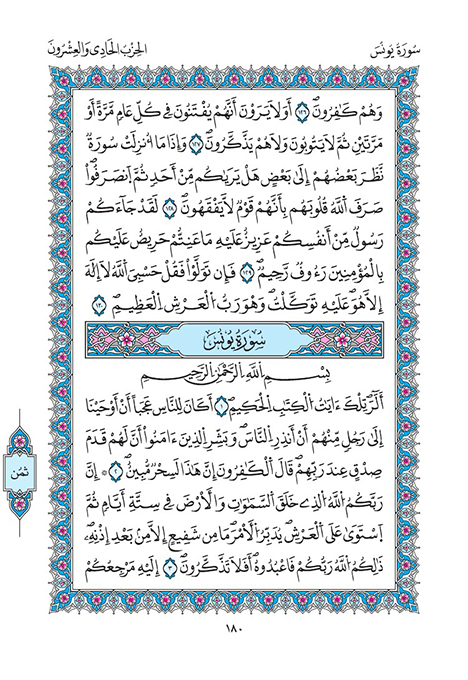 سُورَةُ يُونُسَ
الحِزْبُ الحَادِي وَالعِشْرُونَ
وَهُمْ كَٰفِرُونَۖ ١٢٦ أَوَلَا يَرَوْنَ أَنَّهُمْ يُفْتَنُونَ فِي كُلِّ عَامٖ مَّرَّةً أَوْ
مَرَّتَيْنِ ثُمَّ لَا يَتُوبُونَ وَلَا هُمْ يَذَّكَّرُونَۖ ١٢٧ وَإِذَا مَا أُنزِلَتْ سُورَةٞ
نَّظَرَ بَعْضُهُمْ إِلَىٰ بَعْضٍ هَلْ يَرَىٰكُم مِّنْ أَحَدٖ ثُمَّ اَنصَرَفُواْۖ
صَرَفَ اَللَّهُ قُلُوبَهُم بِأَنَّهُمْ قَوْمٞ لَّا يَفْقَهُونَۖ ١٢٨ لَقَدْ جَآءَكُمْ
رَسُولٞ مِّنْ أَنفُسِكُمْ عَزِيزٌ عَلَيْهِ مَا عَنِتُّمْ حَرِيصٌ عَلَيْكُم
بِالْمُؤْمِنِينَ رَءُوفٞ رَّحِيمٞۖ ١٢٩ فَإِن تَوَلَّوْاْ فَقُلْ حَسْبِيَ اَللَّهُ لَا إِلَٰهَ
إِلَّا هُوَۖ عَلَيْهِ تَوَكَّلْتُۖ وَهُوَ رَبُّ اُلْعَرْشِ اِلْعَظِيمِۖ ١٣٠
سُورَةُ يُونُسَ
بِسْمِ اِللَّهِ اِلرَّحْمَٰنِ اِلرَّحِيمِ
أَلَٓرۖ تِلْكَ ءَايَٰتُ اُلْكِتَٰبِ اِلْحَكِيمِۖ ١ أَكَانَ لِلنَّاسِ عَجَباً أَنْ أَوْحَيْنَا
إِلَىٰ رَجُلٖ مِّنْهُمْ أَنْ أَنذِرِ اِلنَّاسَۖ وَبَشِّرِ اِلذِينَ ءَامَنُواْ أَنَّ لَهُمْ قَدَمَ
صِدْقٍ عِندَ رَبِّهِمْۖ قَالَ اَلْكَٰفِرُونَ إِنَّ هَٰذَا لَسِحْرٞ مُّبِينٌۖ ٢ ۞ إِنَّ
رَبَّكُمُ اُللَّهُ اُلذِي خَلَقَ اَلسَّمَٰوَٰتِ وَالْأَرْضَ فِي سِتَّةِ أَيَّامٖ ثُمَّ
اَسْتَوَىٰ عَلَى اَلْعَرْشِۖ يُدَبِّرُ اُلْأَمْرَۖ مَا مِن شَفِيعٍ إِلَّا مِنۢ بَعْدِ إِذْنِهِۦۖ
ذَٰلِكُمُ اُللَّهُ رَبُّكُمْ فَاعْبُدُوهُۖ أَفَلَا تَذَّكَّرُونَۖ ٣ إِلَيْهِ مَرْجِعُكُمْ
ثُمُن
١٨٠